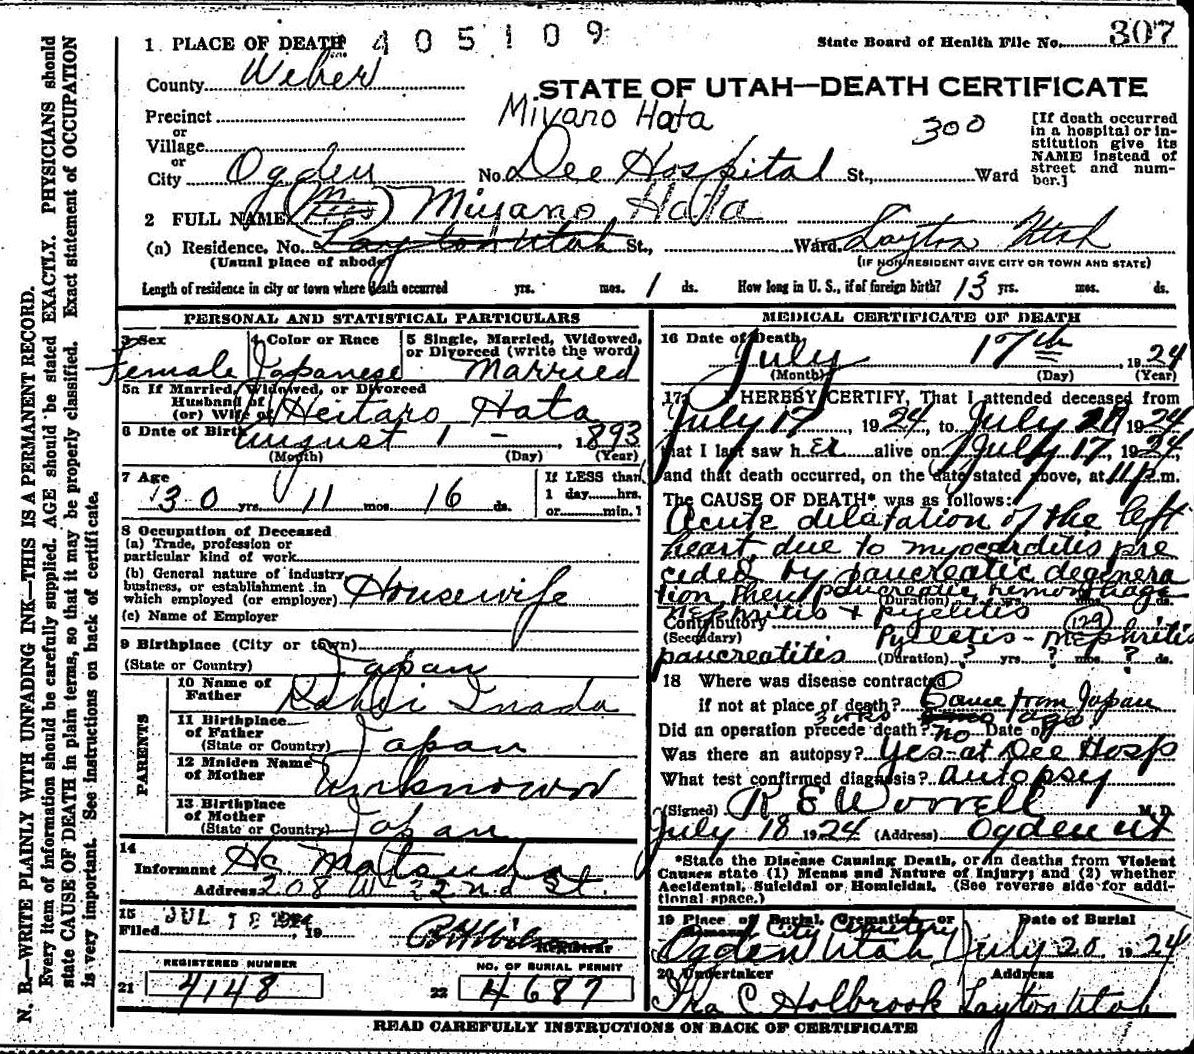 405109
State Board of Health File No. 307
1 PLACE OF DEATH
County Weber
STATE OF UTAH—DEATH CERTIFICATE
Precinct
Miyano Hata
300
[If death occurred in a hospital or institution give its NAME instead of street and number.]
or
Village
or
City Ogden No. Dee Hospital St., Ward
2 FULL NAME (Mrs) Miyano Hata
(a) Residence, No. Layton Utah St., Ward. Layton Utah
(Usual place of abode) (IF NON-RESIDENT GIVE CITY OR TOWN AND STATE)
Length of residence in city or town where death occurred yrs. mos. 1 ds. How long in U. S., if of foreign birth? 13 yrs. mos. ds.
PERSONAL AND STATISTICAL PARTICULARS
3 Sex 4 Color or Race 5 Single, Married, Widowed, or Divorced (write the word)
Female Japanese Married
5a If Married, Widowed, or Divorced
Husband of
(or) Wife of Heitaro Hata
6 Date of Birth August 1 - 1893
(Month) (Day) (Year)
7 Age
30 yrs. 11 mos. 16 ds.
If LESS than
1 day......hrs.
or......min.
8 Occupation of Deceased
(a) Trade, profession or
particular kind of work
(b) General nature of industry
business, or establishment in
which employed (or employer) Housewife
(c) Name of Employer
9 Birthplace (City or town)
(State or Country) Japan
PARENTS
10 Name of
Father Inada
11 Birthplace
of Father
(State or Country) Japan
12 Maiden Name
of Mother Unknown
13 Birthplace
of Mother
(State or Country) Japan
14
Informant H. Matsuda
Address 208 W 22nd St.
15 JUL 18 1924
Filed , 19
Registrar
REGISTERED NUMBER NO. OF BURIAL PERMIT
21 4148 22 4687
MEDICAL CERTIFICATE OF DEATH
16 Date of Death
July 17th 1924
(Month) (Day) (Year)
17 I HEREBY CERTIFY, That I attended deceased from
July 17, 1924, to July 1924
that I last saw her alive on July 17, 1924,
and that death occurred, on the date stated above, at 11 p.m.
The CAUSE OF DEATH* was as follows:
Acute dilatation of the left
heart, due to myocarditis pre
ceded by pancreatic degenera
tion then pancreatic hemorrhage
(Duration) yrs. mos. ds.
nephritis & pyelitis
Contributory 129
(Secondary) Pyelitis - nephritis
pancreatitis (Duration) ? yrs. ? mos. ? ds.
18 Where was disease contracted
if not at place of death? Came from Japan
3 wks ago
Did an operation precede death? no Date of
Was there an autopsy? Yes - at Dee Hosp
What test confirmed diagnosis? autopsy
(Signed) R E Worrell M.D.
July 18 1924 (Address) Ogden Ut
*State the Disease Causing Death, or in deaths from Violent
Causes state (1) Means and Nature of Injury; and (2) whether
Accidental, Suicidal or Homicidal. (See reverse side for addi-
tional space.)
19 Place of Burial, Cremation, or Removal Date of Burial
City Cemetery
Ogden Utah July 20 1924
20 Undertaker Address
Ira C. Holbrook Layton Utah
READ CAREFULLY INSTRUCTIONS ON BACK OF CERTIFICATE
N. B.—WRITE PLAINLY WITH UNFADING INK—THIS IS A PERMANENT RECORD.
Every item of information should be carefully supplied. AGE should be stated EXACTLY. PHYSICIANS should
state CAUSE OF DEATH in plain terms, so that it may be properly classified. Exact statement of OCCUPATION
is very important. See instructions on back of certificate.